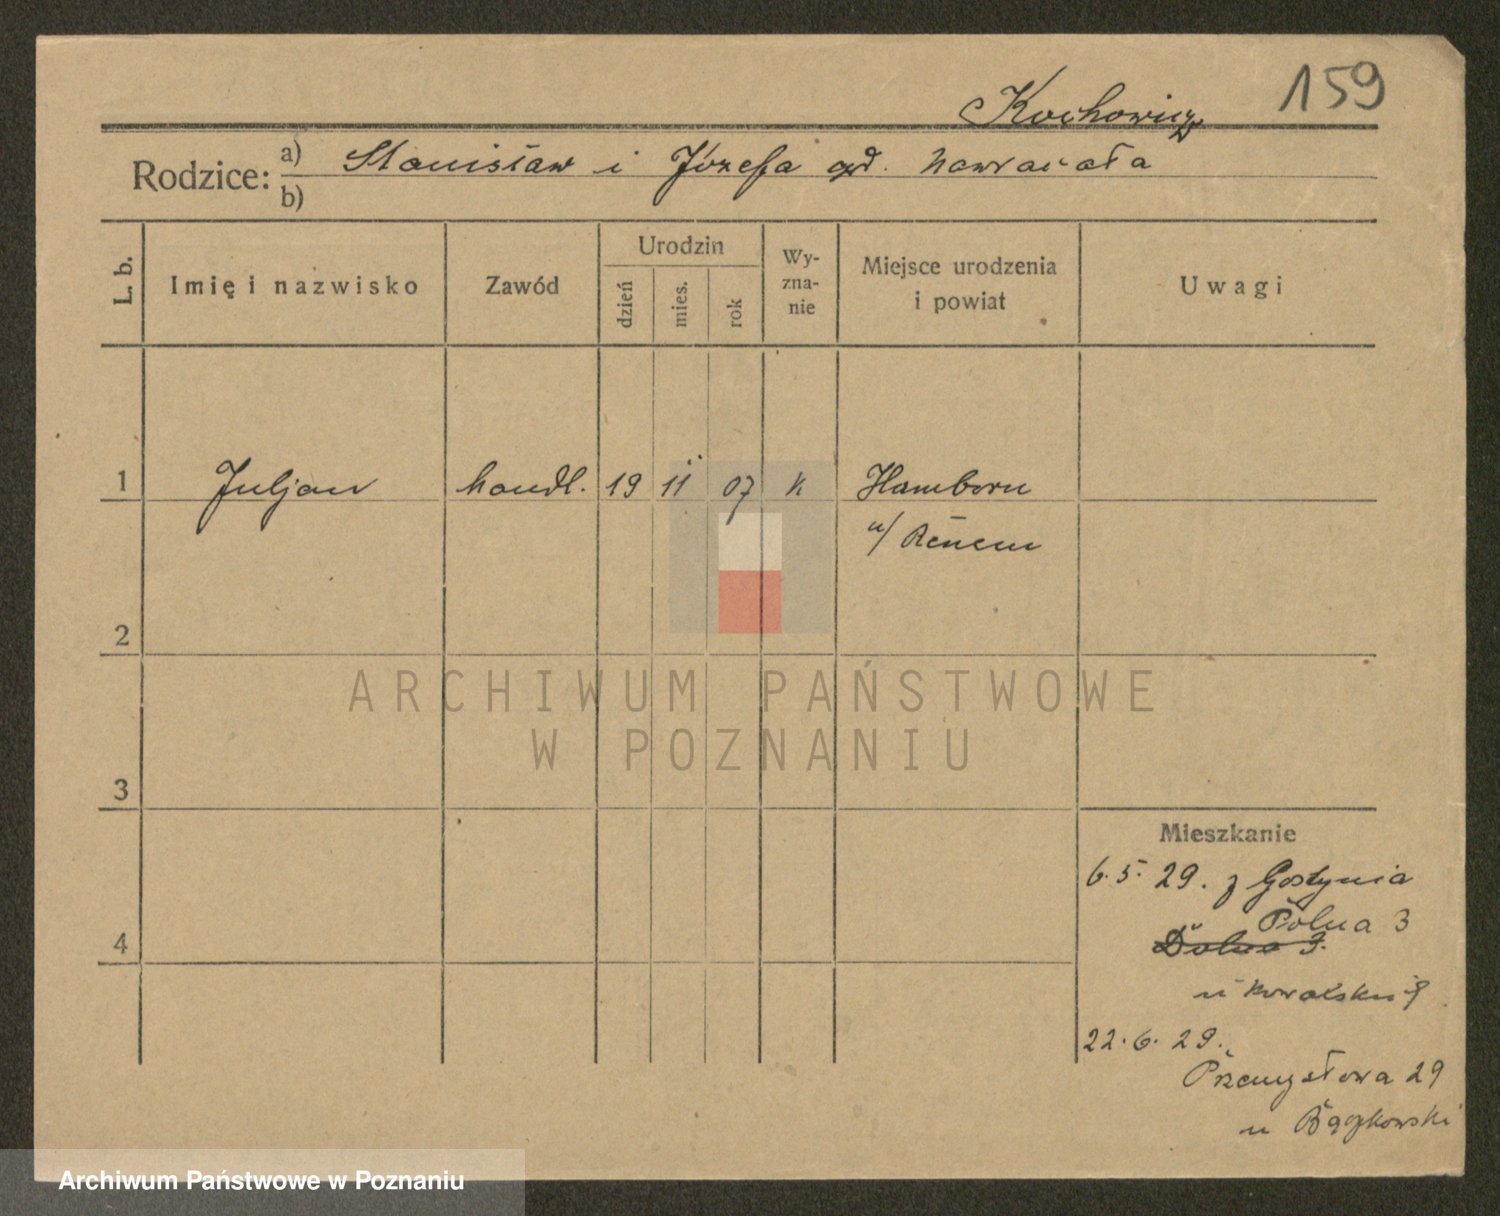 159
Kochowicz
Rodzice: a) Stanisław i Józefa
b)
L. b. Imię i nazwisko Zawód Urodzin dzień mies. rok Wy-zna-nie Miejsce urodzenia i powiat Uwagi
1 Juljan handl. 19 11 07 k Hamborn
n/ Renem
2
ARCHIWUM PAŃSTWOWE
W POZNANIU
3
Mieszkanie
6. 5. 29. z Gostynia
Polna 3
4 Dolna 3.
u Kowalskiej
22. 6. 29.
Przemysłowa 29
u Bączkowski
Archiwum Państwowe w Poznaniu